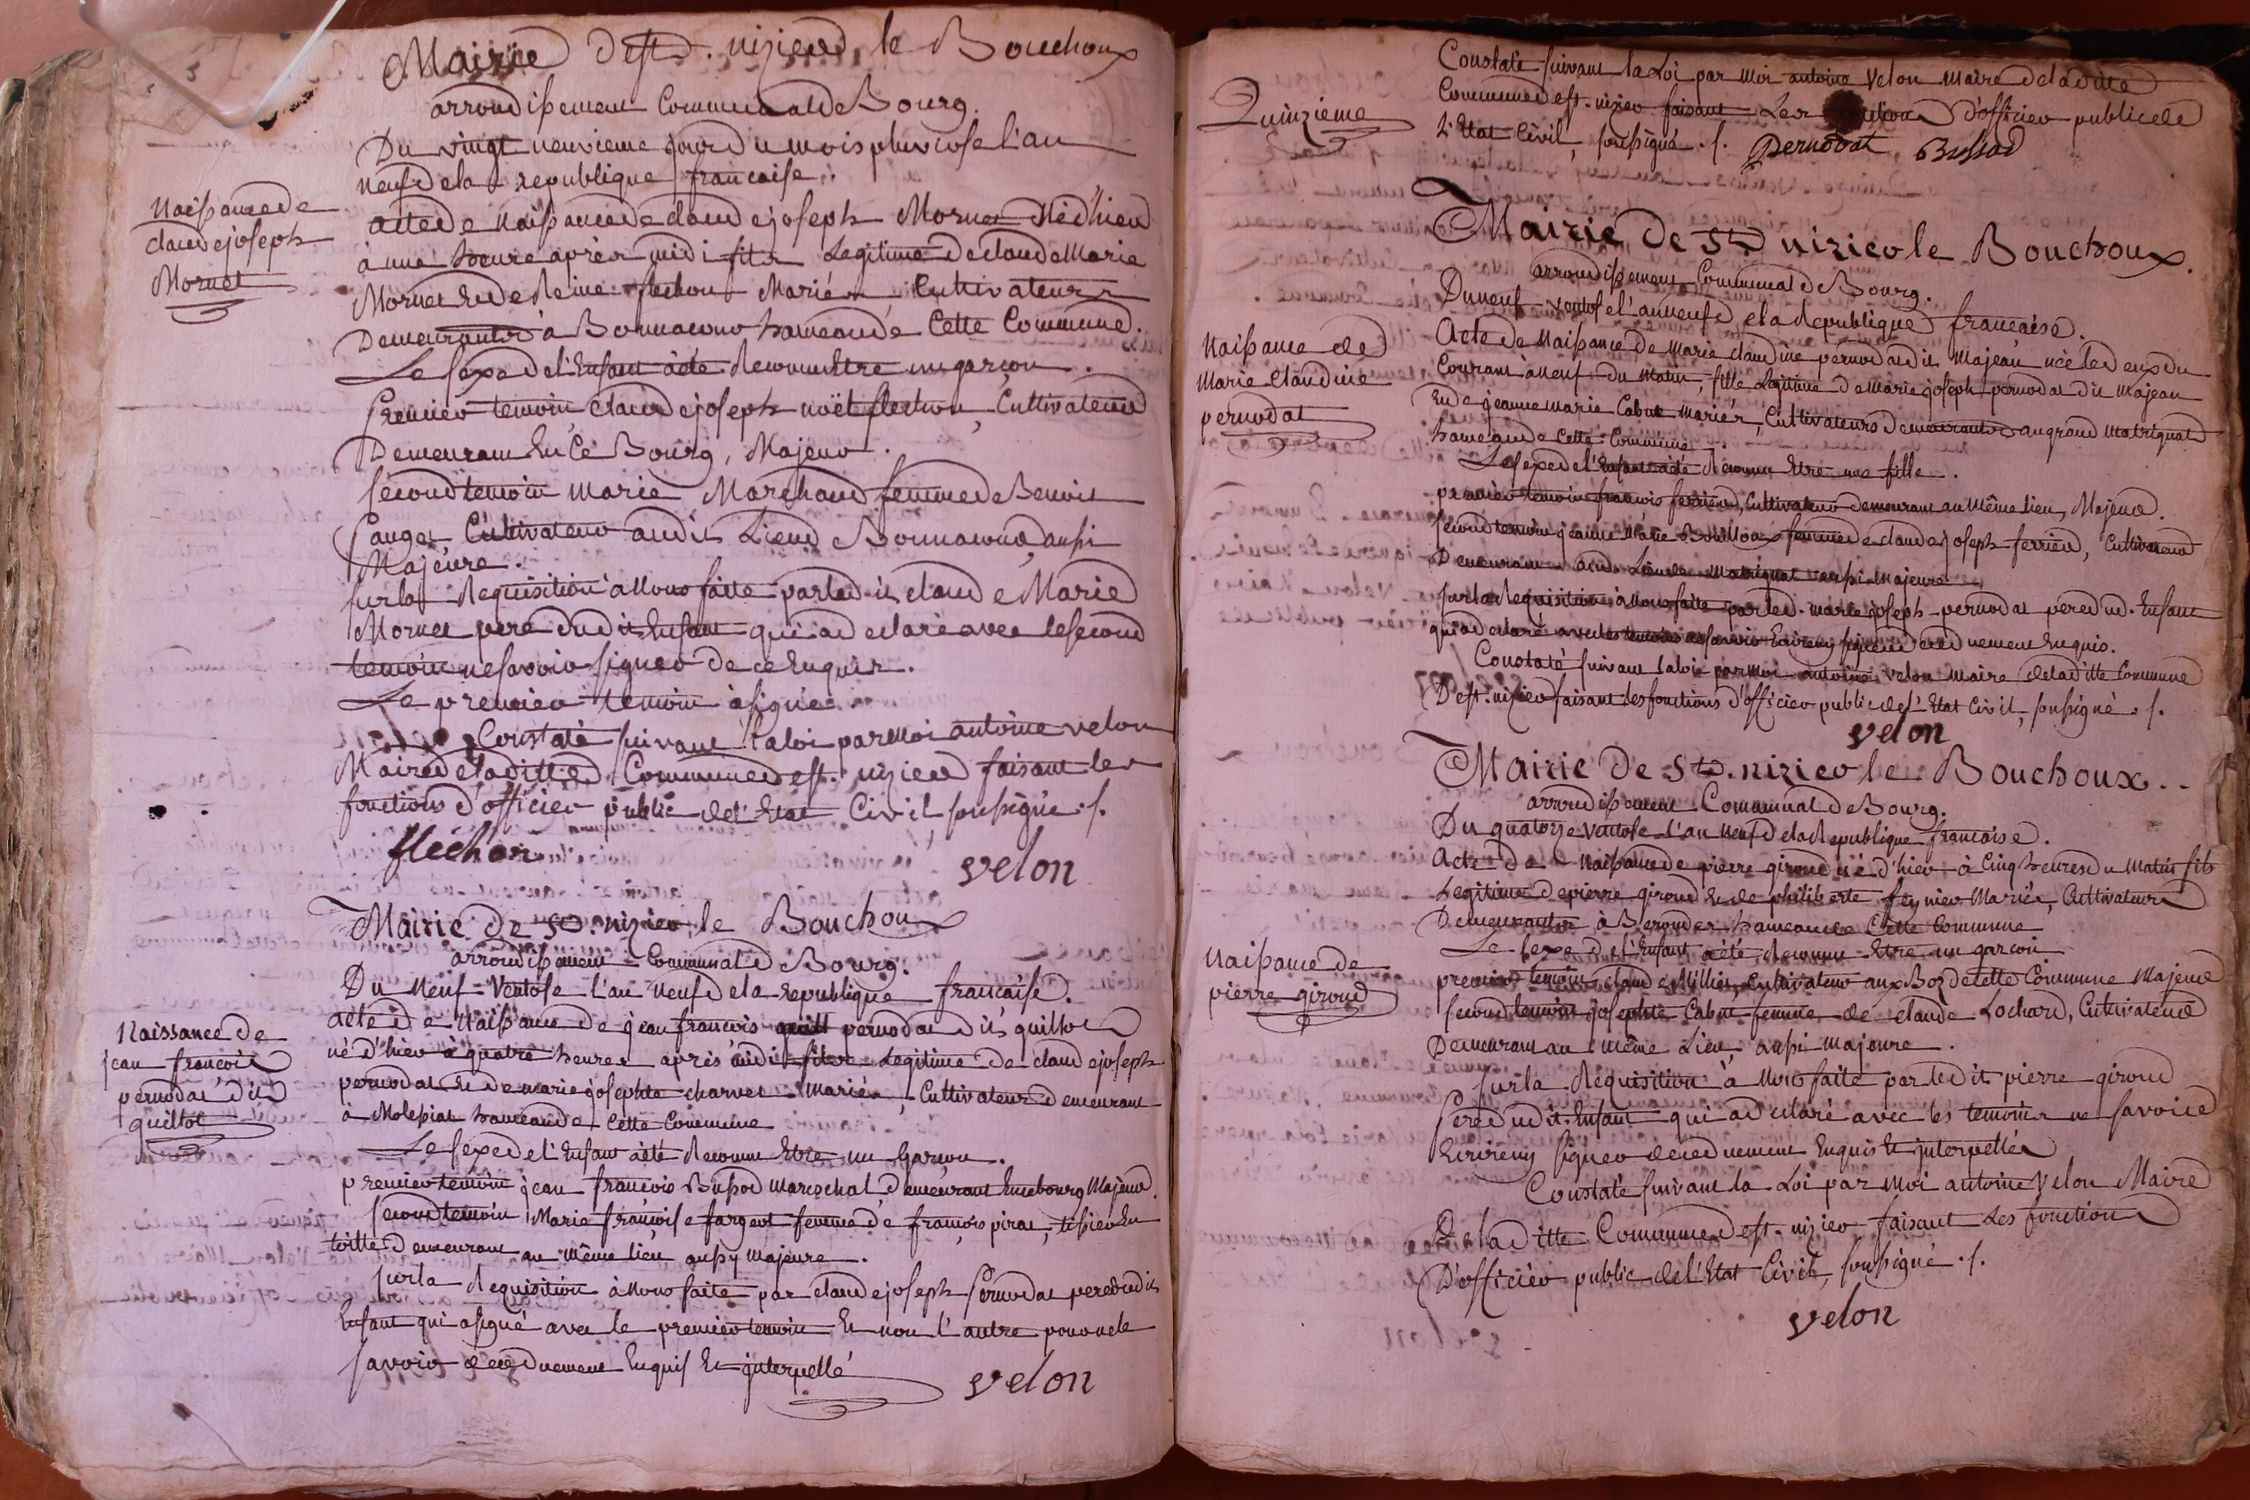 Mairie de st. nizier le Bouchoux
arrondissement Communal de Bourg.
Du vingt neuvieme jour du mois pluviose l'an
neuf de la republique francaise.
Naissance de
claude joseph
Mornet
acte de Naissance de claude joseph Mornet Né d'hier
à une heure après midi fils Legitime de claude Marie
Mornet Et de Reine flechon Mariés Cultivateurs
Demeurants à Bonnacour hameau de Cette Commune.
Le sexe de l'Enfant a été Reconnu Etre un garcon.
Premier temoin claude joseph noël flechon, Cultivateur
Demeurant En Ce Bourg, Majeur.
second temoin marie Marchand femme de Benoit
Cultivateur audit Lieu Bonnacour, aussi
Majeure.
sur la Requisition à Nous faitte par led it claude Marie
Mornet pere dudit Enfant qui a declaré avec le second
temoin ne savoir signer de ce Enquis.
Le premier temoin a signé.
Constaté suivant la loi par Moi antoine velon
Maire de laditte Commune de st. nizier faisant les
fonctions d'officier public de l'Etat Civil, soussigné ./.
fléchon
velon
Mairie de st. nizier le Bouchoux
arrondissement Communal de Bourg.
Du Neuf Ventose l'an Neuf de la republique francaise.
Naissance de
jean francois
pernodat dit
quillot
acte de Naissance de jean francois pernodat dit quillot
né d'hier à quatre heures après midi fils Legitime de claude joseph
pernodat Et de marie josephte charvet Mariés, Cultivateurs demeurant
à Molepiat hameau de Cette Commune
Le sexe de l'Enfant a été Reconnu Etre un Garcon.
premier temoin jean francois Bussod marechal demeurant En ce bourg Majeur.
second temoin Marie francoise fargeot femme de francois pirat, tissier En
toille demeurant au même lieu aussy majeure.
sur la Requisition à Nous faite par claude joseph Pernodat pere dudit
Enfant qui a signé avec le premier temoin Et non l'autre pour ne le
savoir de ce duement Enquis Et interpellé
velon
Quinzieme
Constaté suivant la Loi par Moi antoine Velon Maire de la ditte
Commune de st. nizier faisant Les fonctions d'officier public de
L'Etat Civil, soussigné ./. Pernodat Bussod
Mairie de St. nizier le Bouchoux.
arrondissement Communal de Bourg.
Du neuf ventose l'an neuf de la Republique francaise.
Naissance de
Marie Claudine
pernodat
Acte de Naissance de Marie claudine pernodat dit Majean née le deux du
Courant à neuf du Matin, fille Legitime de Marie joseph pernodat dit Majean
Et de jeanne marie Cabut Mariés, Cultivateurs demeurants au grand Matrignat
hameau de Cette Commune
Le sexe de l'Enfant a été Reconnu Etre une fille.
premier temoin francois ferrier, Cultivateur demeurant au Même lieu, Majeur.
second temoin jeanne Marie Bouilloux femme de claude joseph ferrier, Cultivateur
Demeurant aud. Lieu de Matrignat aussi Majeure
sur la Requisition à Nous faite par led. marie joseph pernodat pere dud. Enfant
qui a declaré avec les temoins ne savoir Ecrire ny signer de ce duement Enquis.
Constaté suivant la loi par Moi antoine velon Maire de laditte Commune
De st. nizier faisant les fonctions d'officier public de l'Etat Civil, soussigné ./.
velon
Mairie de St. nizier le Bouchoux..
arrondissement Communal de Bourg.
Du quatorze Ventose l'an Neuf de la Republique francaise.
Acte de Naissance de pierre giroud né d'hier à Cinq heures du Matin fils
Legitime de pierre giroud Et de philiberte Mariés, Cultivateurs
Demeurants à hameau de Cette Commune
Naissance de
pierre giroud
Le sexe de l'Enfant a été reconnu Etre un garcon
premier temoin claude Cultivateur aux Boz de Cette Commune Majeur
second temoin josephte Cabut femme de claude Lochard, Cultivateur
Demeurant au même Lieu, aussi majeure.
sur la Requisition à Nous faite par ledit pierre giroud
Pere dudit Enfant qui a declaré avec les temoins ne savoir
Ecrire ny signer de ce duement Enquis Et interpellés
Constaté suivant la Loi par Moi antoine Velon Maire
De la ditte Commune de st. nizier faisant Les fonctions
D'officier public de l'Etat Civil, soussigné ./.
velon